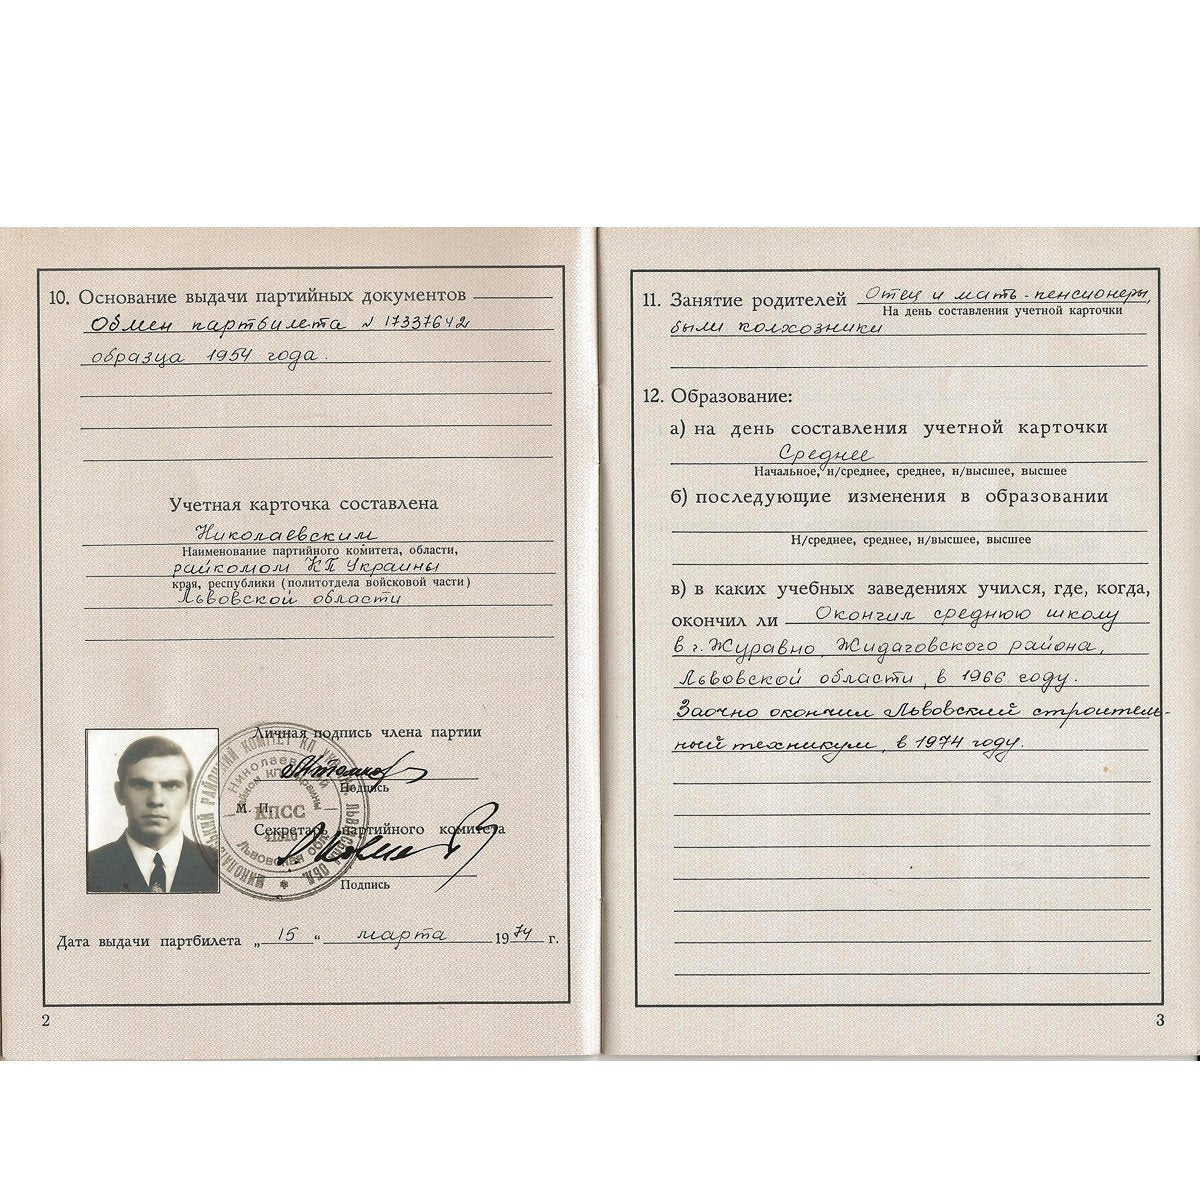 10. Основание выдачи партийных документов
Обмен партбилета № 17337642
образца 1954 года.
Учетная карточка составлена
Николаевским
Наименование партийного комитета, области,
райкомом КП Украины
края, республики (политотдела войсковой части)
Львовской области
Личная подпись члена партии
Подпись
М. П.
Секретарь партийного комитета
Подпись
КПСС
Дата выдачи партбилета „15“ марта 1974 г.
2
11. Занятие родителей Отец и мать - пенсионеры,
На день составления учетной карточки
были колхозники
12. Образование:
а) на день составления учетной карточки
Среднее
Начальное, н/среднее, среднее, н/высшее, высшее
б) последующие изменения в образовании
Н/среднее, среднее, н/высшее, высшее
в) в каких учебных заведениях учился, где, когда,
окончил ли Окончил среднюю школу
в г. Журавно, Жидачовского района,
Львовской области, в 1966 году.
Заочно окончил Львовский строитель-
ный техникум, в 1974 году.
3